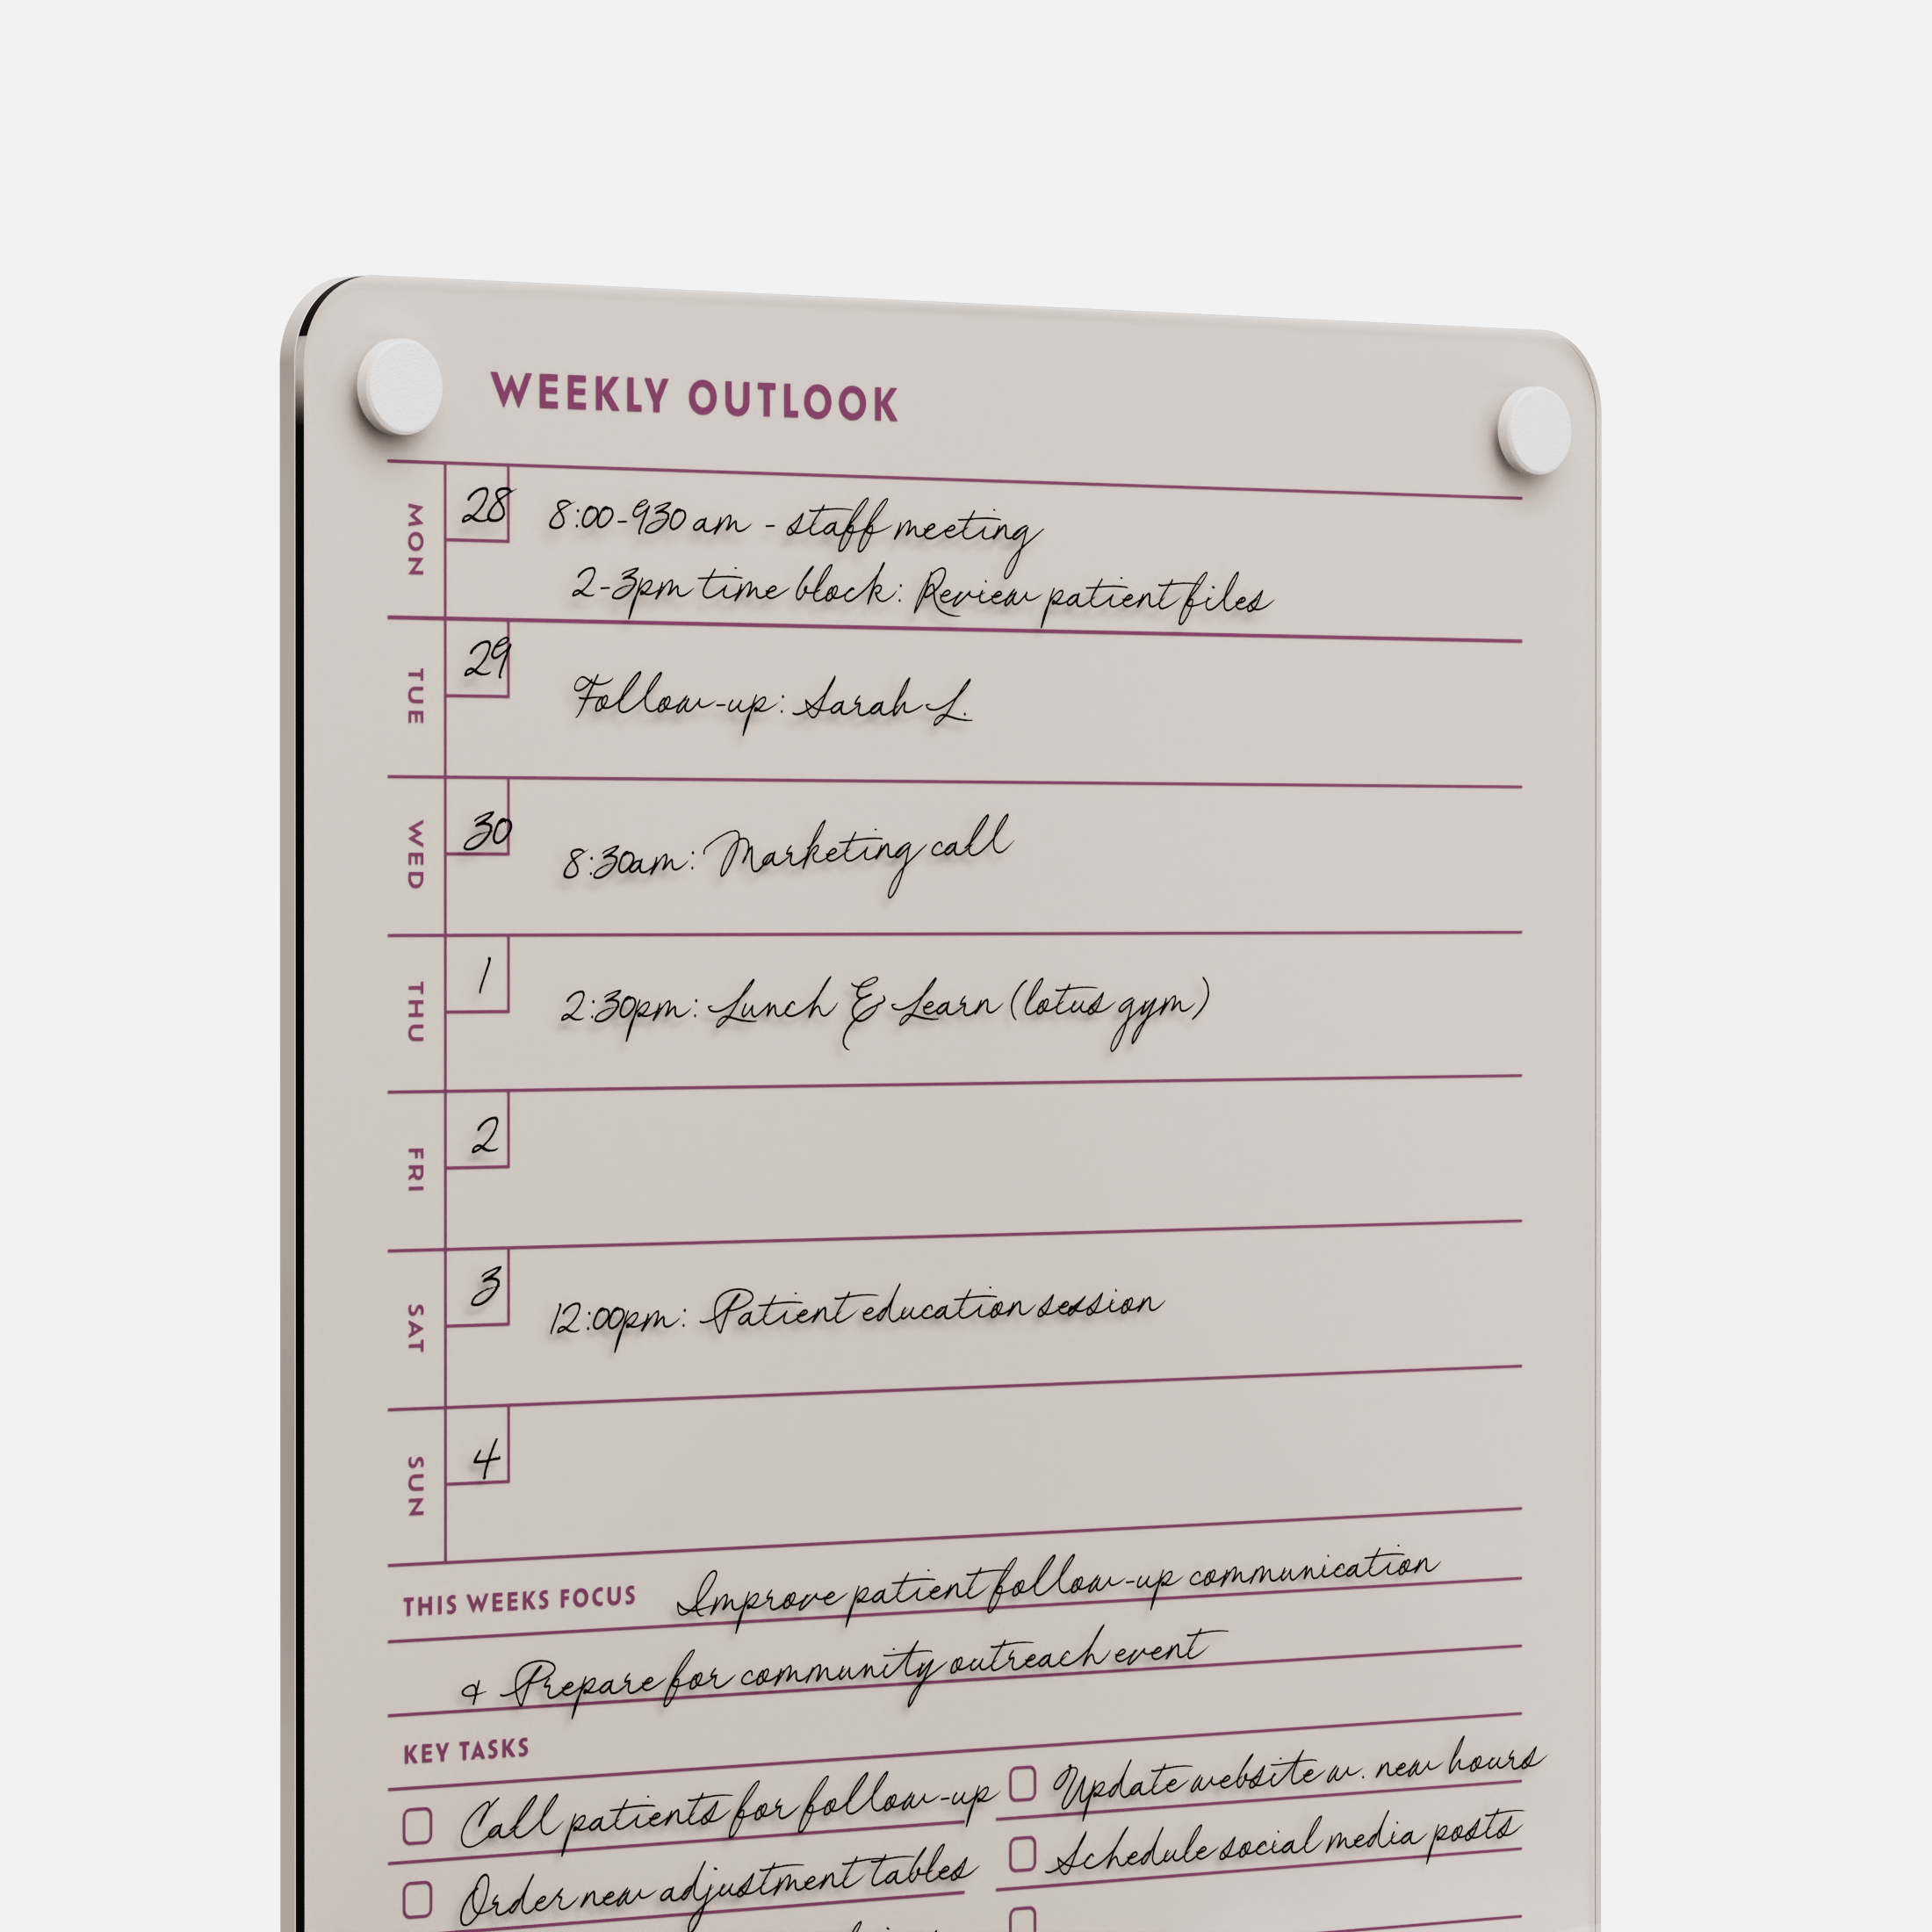 WEEKLY OUTLOOK
MON 28 8:00-930 am - staff meeting
2-3pm time block: Review patient files
TUE 29 Follow-up: Sarah L.
WED 30 8:30am: Marketing call
THU 1 2:30pm: Lunch & Learn (lotus gym)
FRI 2
SAT 3 12:00pm: Patient education session
SUN 4
THIS WEEKS FOCUS Improve patient follow-up communication
& Prepare for community outreach event
KEY TASKS
Call patients for follow-up
Order new adjustment tables
Update website w. new hours
Schedule social media posts